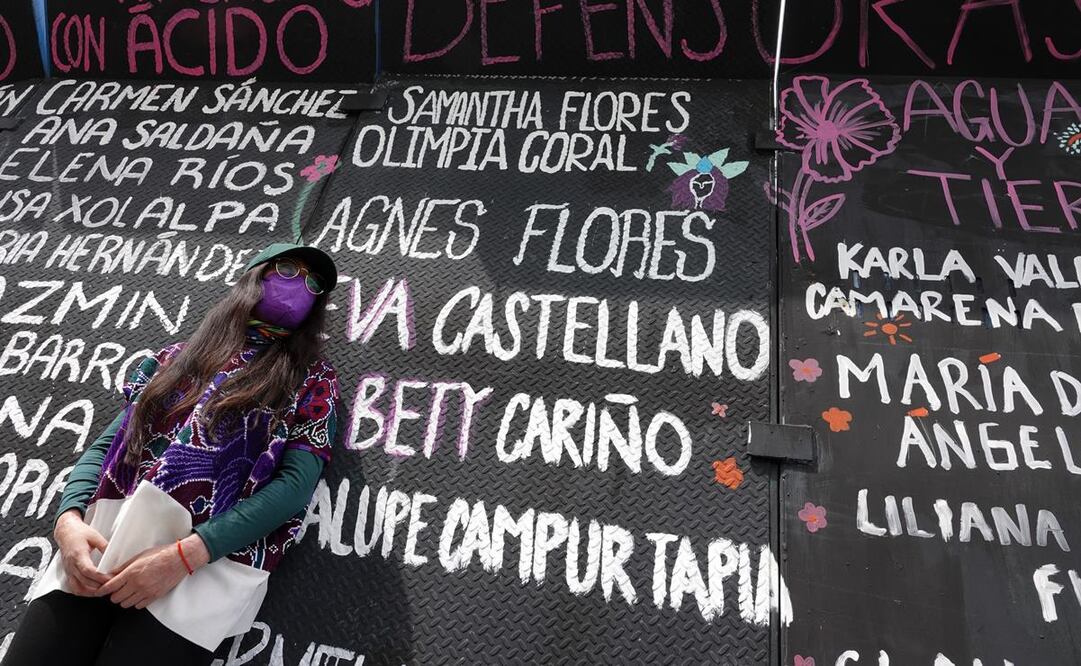 CON ÁCIDO
DEFENSORAS
CARMEN SÁNCHEZ
ANA SALDAÑA
ELENA RÍOS
XOLALPA
HERNÁNDE
BARRO
SAMANTHA FLORES
OLIMPIA CORAL
AGNES FLORES
EVA CASTELLANO
BETY CARIÑO
ALUPE CAMPUR TAPIA
AGUA
Y
TIER
KARLA VAL
CAMARENA
MARÍA D
ÁNGEL
LILIANA